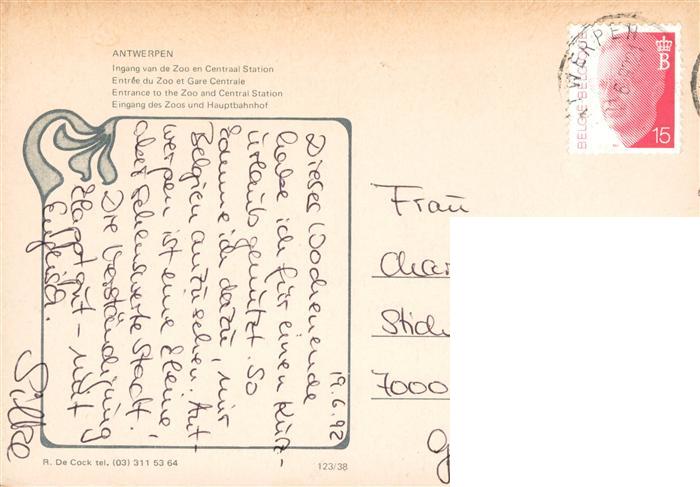 ANTWERPEN
Ingang van de Zoo en Centraal Station
Entrée du Zoo et Gare Centrale
Entrance to the Zoo and Central Station
Eingang des Zoos und Hauptbahnhof
BELGIE-BELGIQUE
B
15
19.6.92
Dieses Wochenende
habe ich für einen Kurz-
urlaub genutzt. So
komme ich dazu, mir
Belgien anzusehen. Ant-
werpen ist eine kleine,
aber sehenswerte Stadt.
Die Verständigung
klappt gut - mit
Englisch.
Silke
Frau
Char
Stich
7000
R. De Cock tel. (03) 311 53 64
123/38